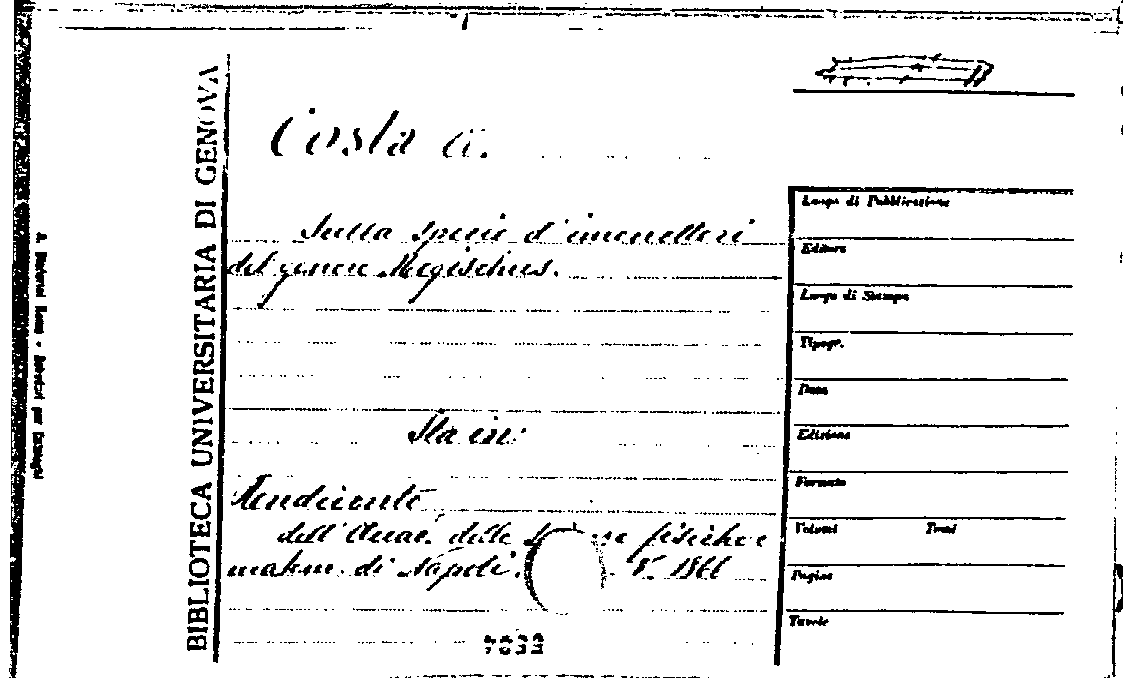 BIBLIOTECA UNIVERSITARIA DI GENOVA
Costa A.
Sulla specie d'imenotteri
del genere Megischus.
Sta in:
Rendiconto
dell'Accad. delle fisiche e
matem. di Napoli. V. 1866
7032
Luogo di Pubblicazione
Editore
Luogo di Stampa
Tipogr.
Data
Edizione
Formato
Volumi Tomi
Pagine
Tavole